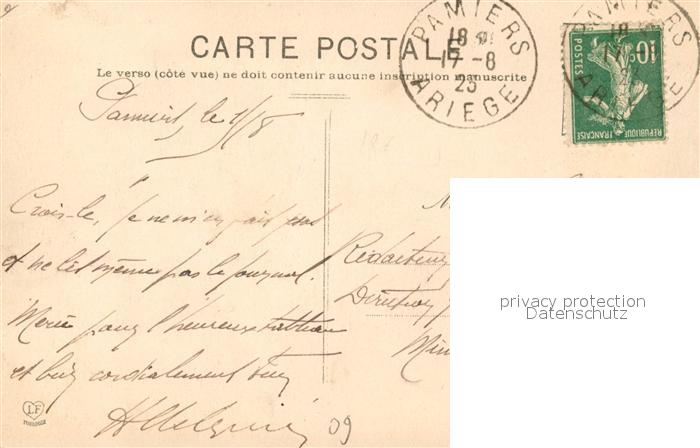 CARTE POSTALE
Le verso (côté vue) ne doit contenir aucune inscription manuscrite
PAMIERS
18
17-8
25
ARIEGE
PAMIERS
18
17
ARIEGE
10c
POSTES
REPUBLIQUE FRANÇAISE
Pamiers, le 1/8
Crois-le, je ne m'en fais pas
et ne lis même pas le journal.
Merci pour l'heureux
et bien cordialement
Rédacteur
Direction
Min
privacy protection
Datenschutz
LF
TOULOUSE
09